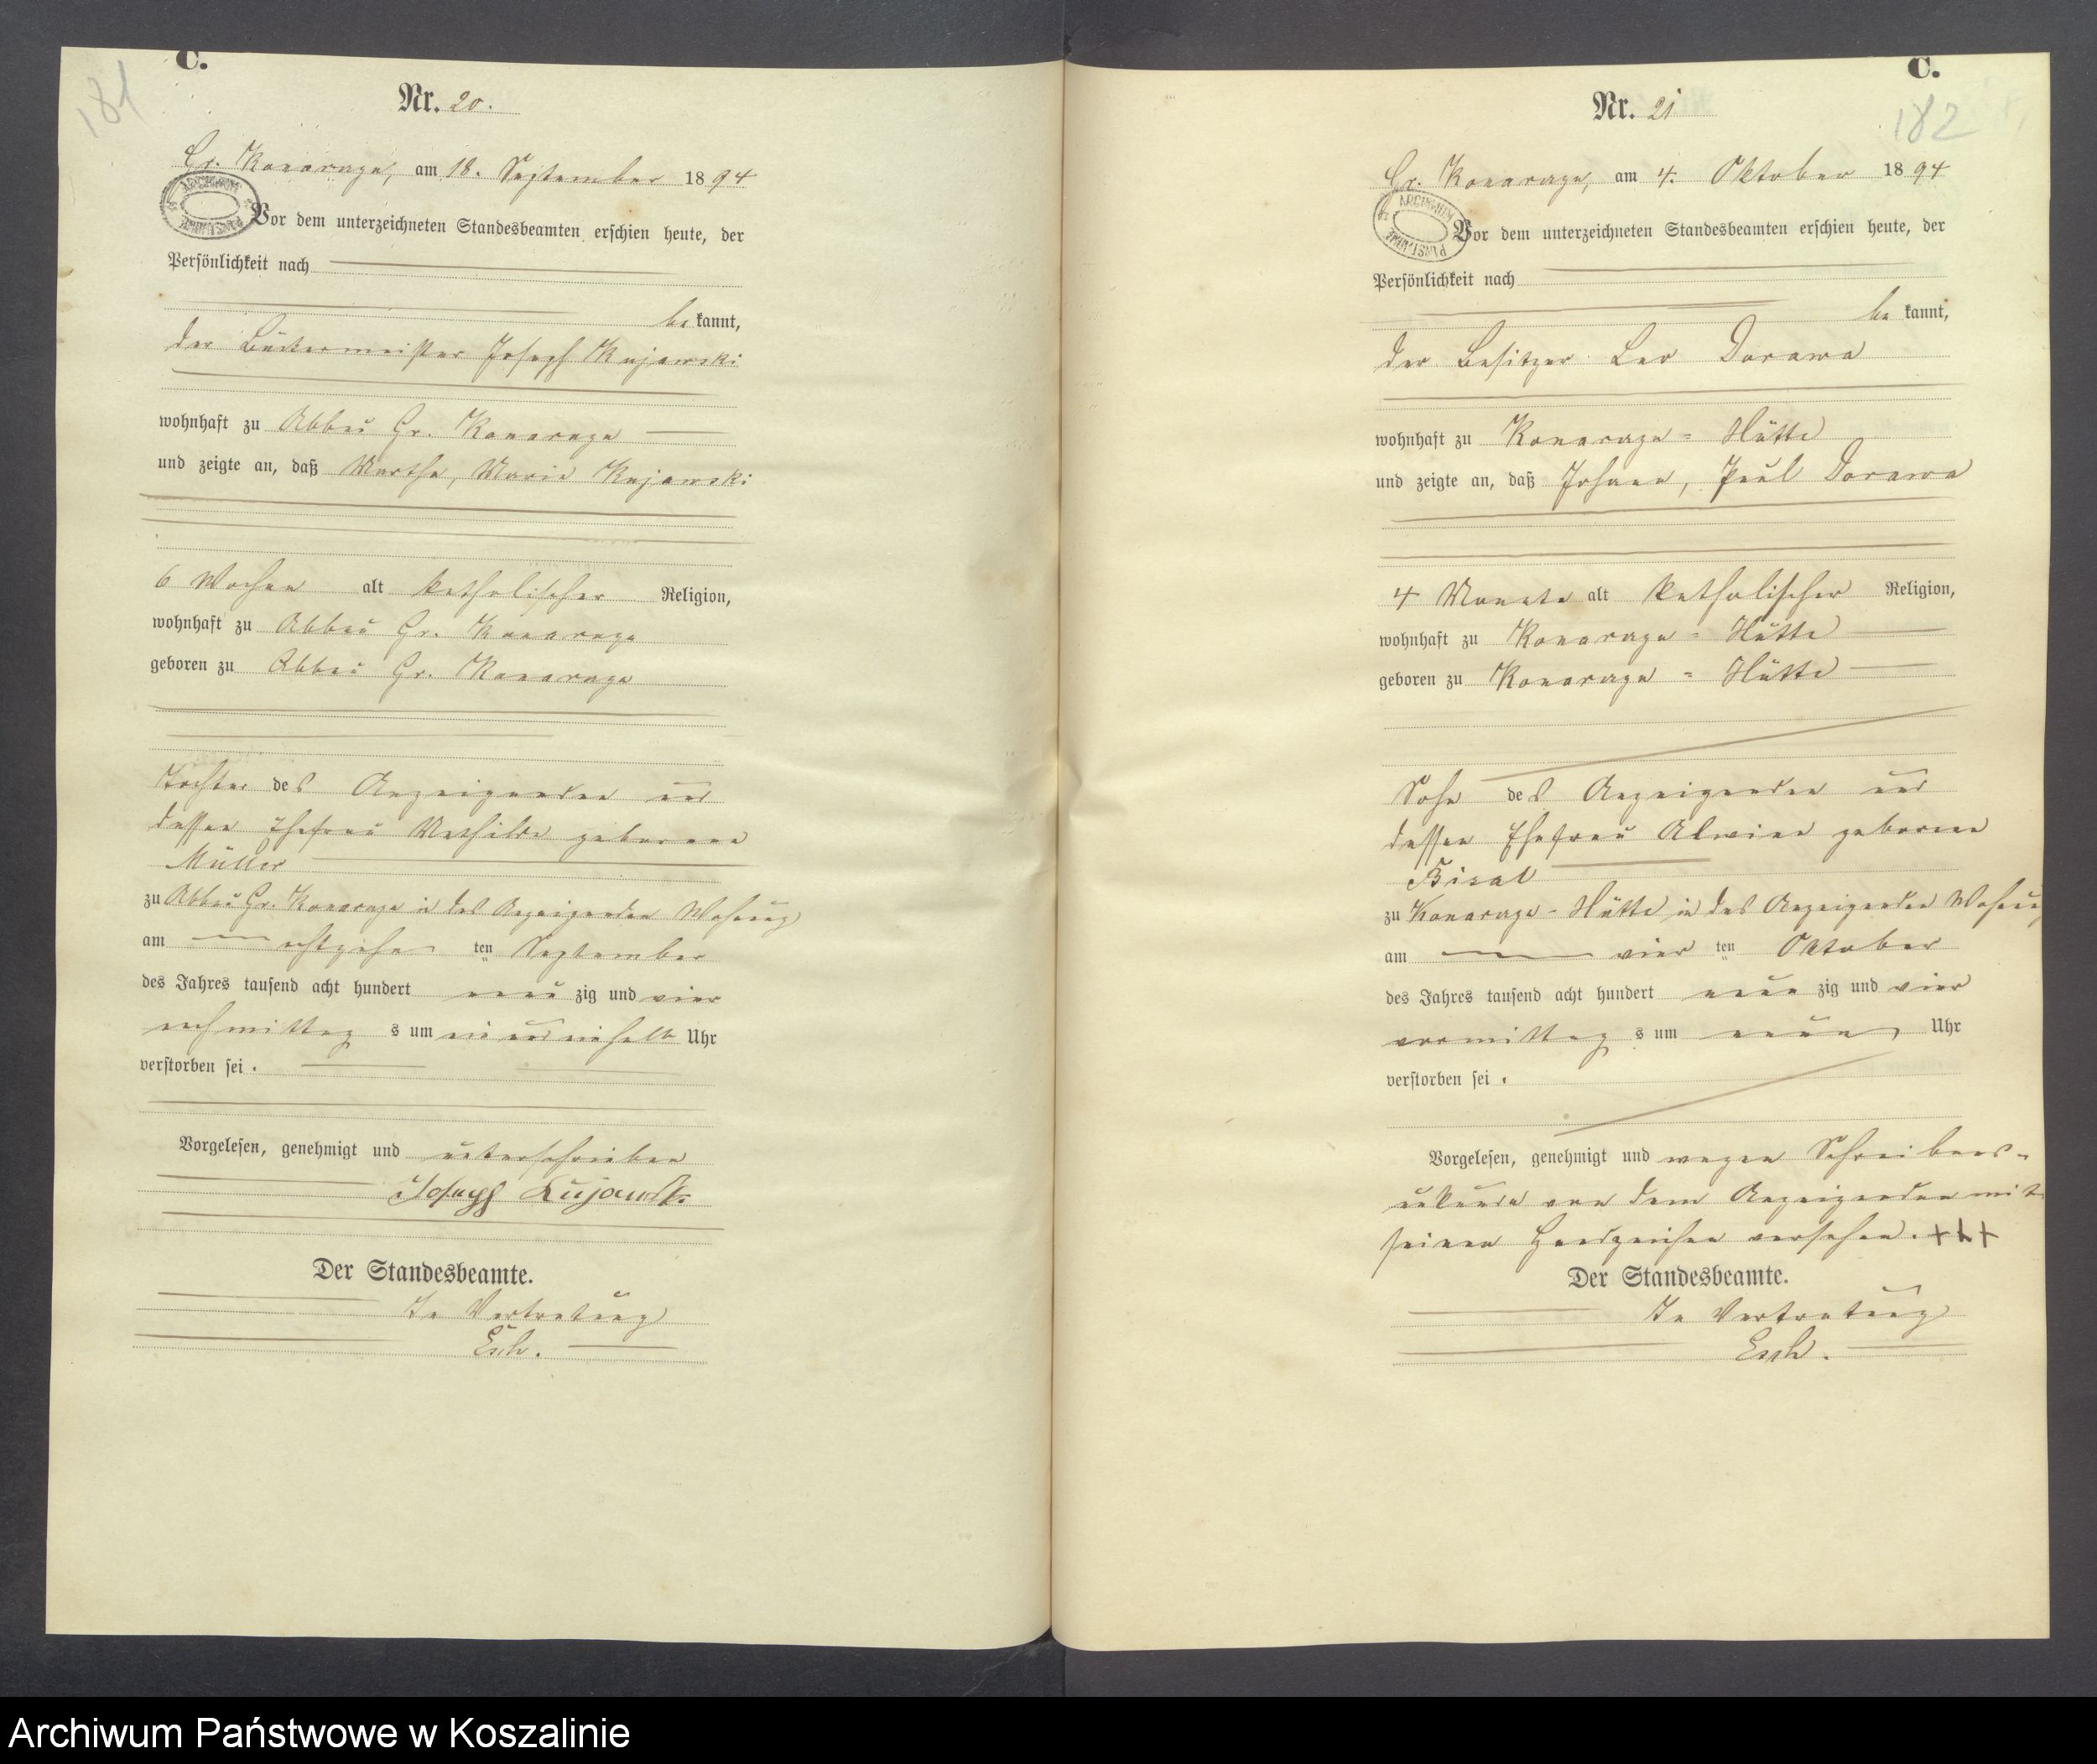 C.
181
Nr. 20.
Gr. Konarzyn, am 18. September 1894
ARCHIWUM PAŃSTWOWE
Vor dem unterzeichneten Standesbeamten erschien heute, der
Persönlichkeit nach
bekannt,
der Bäckermeister Joseph Kujawski
wohnhaft zu Abbau Gr. Konarzyn
und zeigte an, daß Martha, Marie Kujawski
6 Wochen alt katholischer Religion,
wohnhaft zu Abbau Gr. Konarzyn
geboren zu Abbau Gr. Konarzyn
Tochter des Anzeigenden und
dessen Ehefrau Mathilde geborene
Müller
zu Abbau Gr. Konarzyn in des Anzeigenden Wohnung
am achtzehnten September
des Jahres tausend acht hundert neunzig und vier
nachmittags um ein und einhalb Uhr
verstorben sei.
Vorgelesen, genehmigt und unterschrieben
Joseph Kujawski
Der Standesbeamte.
In Vertretung
C.
182
Nr. 21
Gr. Konarzyn, am 4. Oktober 1894
ARCHIWUM PAŃSTWOWE
Vor dem unterzeichneten Standesbeamten erschien heute, der
Persönlichkeit nach
bekannt,
der Besitzer Leo Dorawa
wohnhaft zu Konarzyn-Hütte
und zeigte an, daß Johann, Paul Dorawa
4 Monate alt katholischer Religion,
wohnhaft zu Konarzyn-Hütte
geboren zu Konarzyn-Hütte
Sohn des Anzeigenden und
dessen Ehefrau Alwine geborene
zu Konarzyn-Hütte in des Anzeigenden Wohnung
am vierten Oktober
des Jahres tausend acht hundert neunzig und vier
vormittags um neun Uhr
verstorben sei.
Vorgelesen, genehmigt und wegen Schreibens-
unkunde von dem Anzeigenden mit
seinen Handzeichen versehen. +++
Der Standesbeamte.
In Vertretung
Archiwum Państwowe w Koszalinie